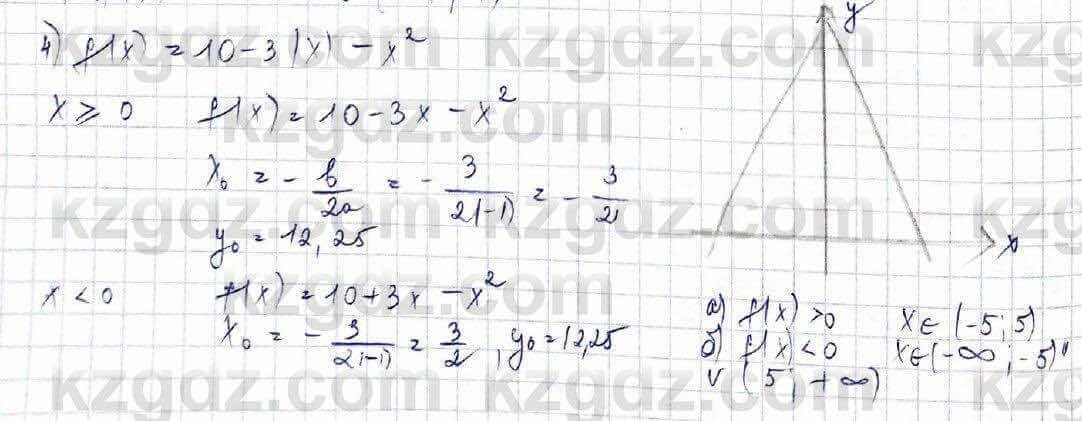 4) f(x) = 10 - 3|x| - x²
x ≥ 0 f(x) = 10 - 3x - x²
x₀ = - b/2a = - 3/2(-1) = - 3/2
y₀ = 12,25
x < 0 f(x) = 10 + 3x - x²
x₀ = - 3/2(-1) = 3/2, y₀ = 12,25
y
x
а) f(x) > 0 x ∈ (-5; 5)
б) f(x) < 0 x ∈ (-∞; -5)
v (5; +∞)
kzgdz.com kzgdz.com kzgdz.com
kzgdz.com
kzgdz.com kzgdz.com kzgdz.com
kzgdz.com
kzgdz.com kzgdz.com kzgdz.com